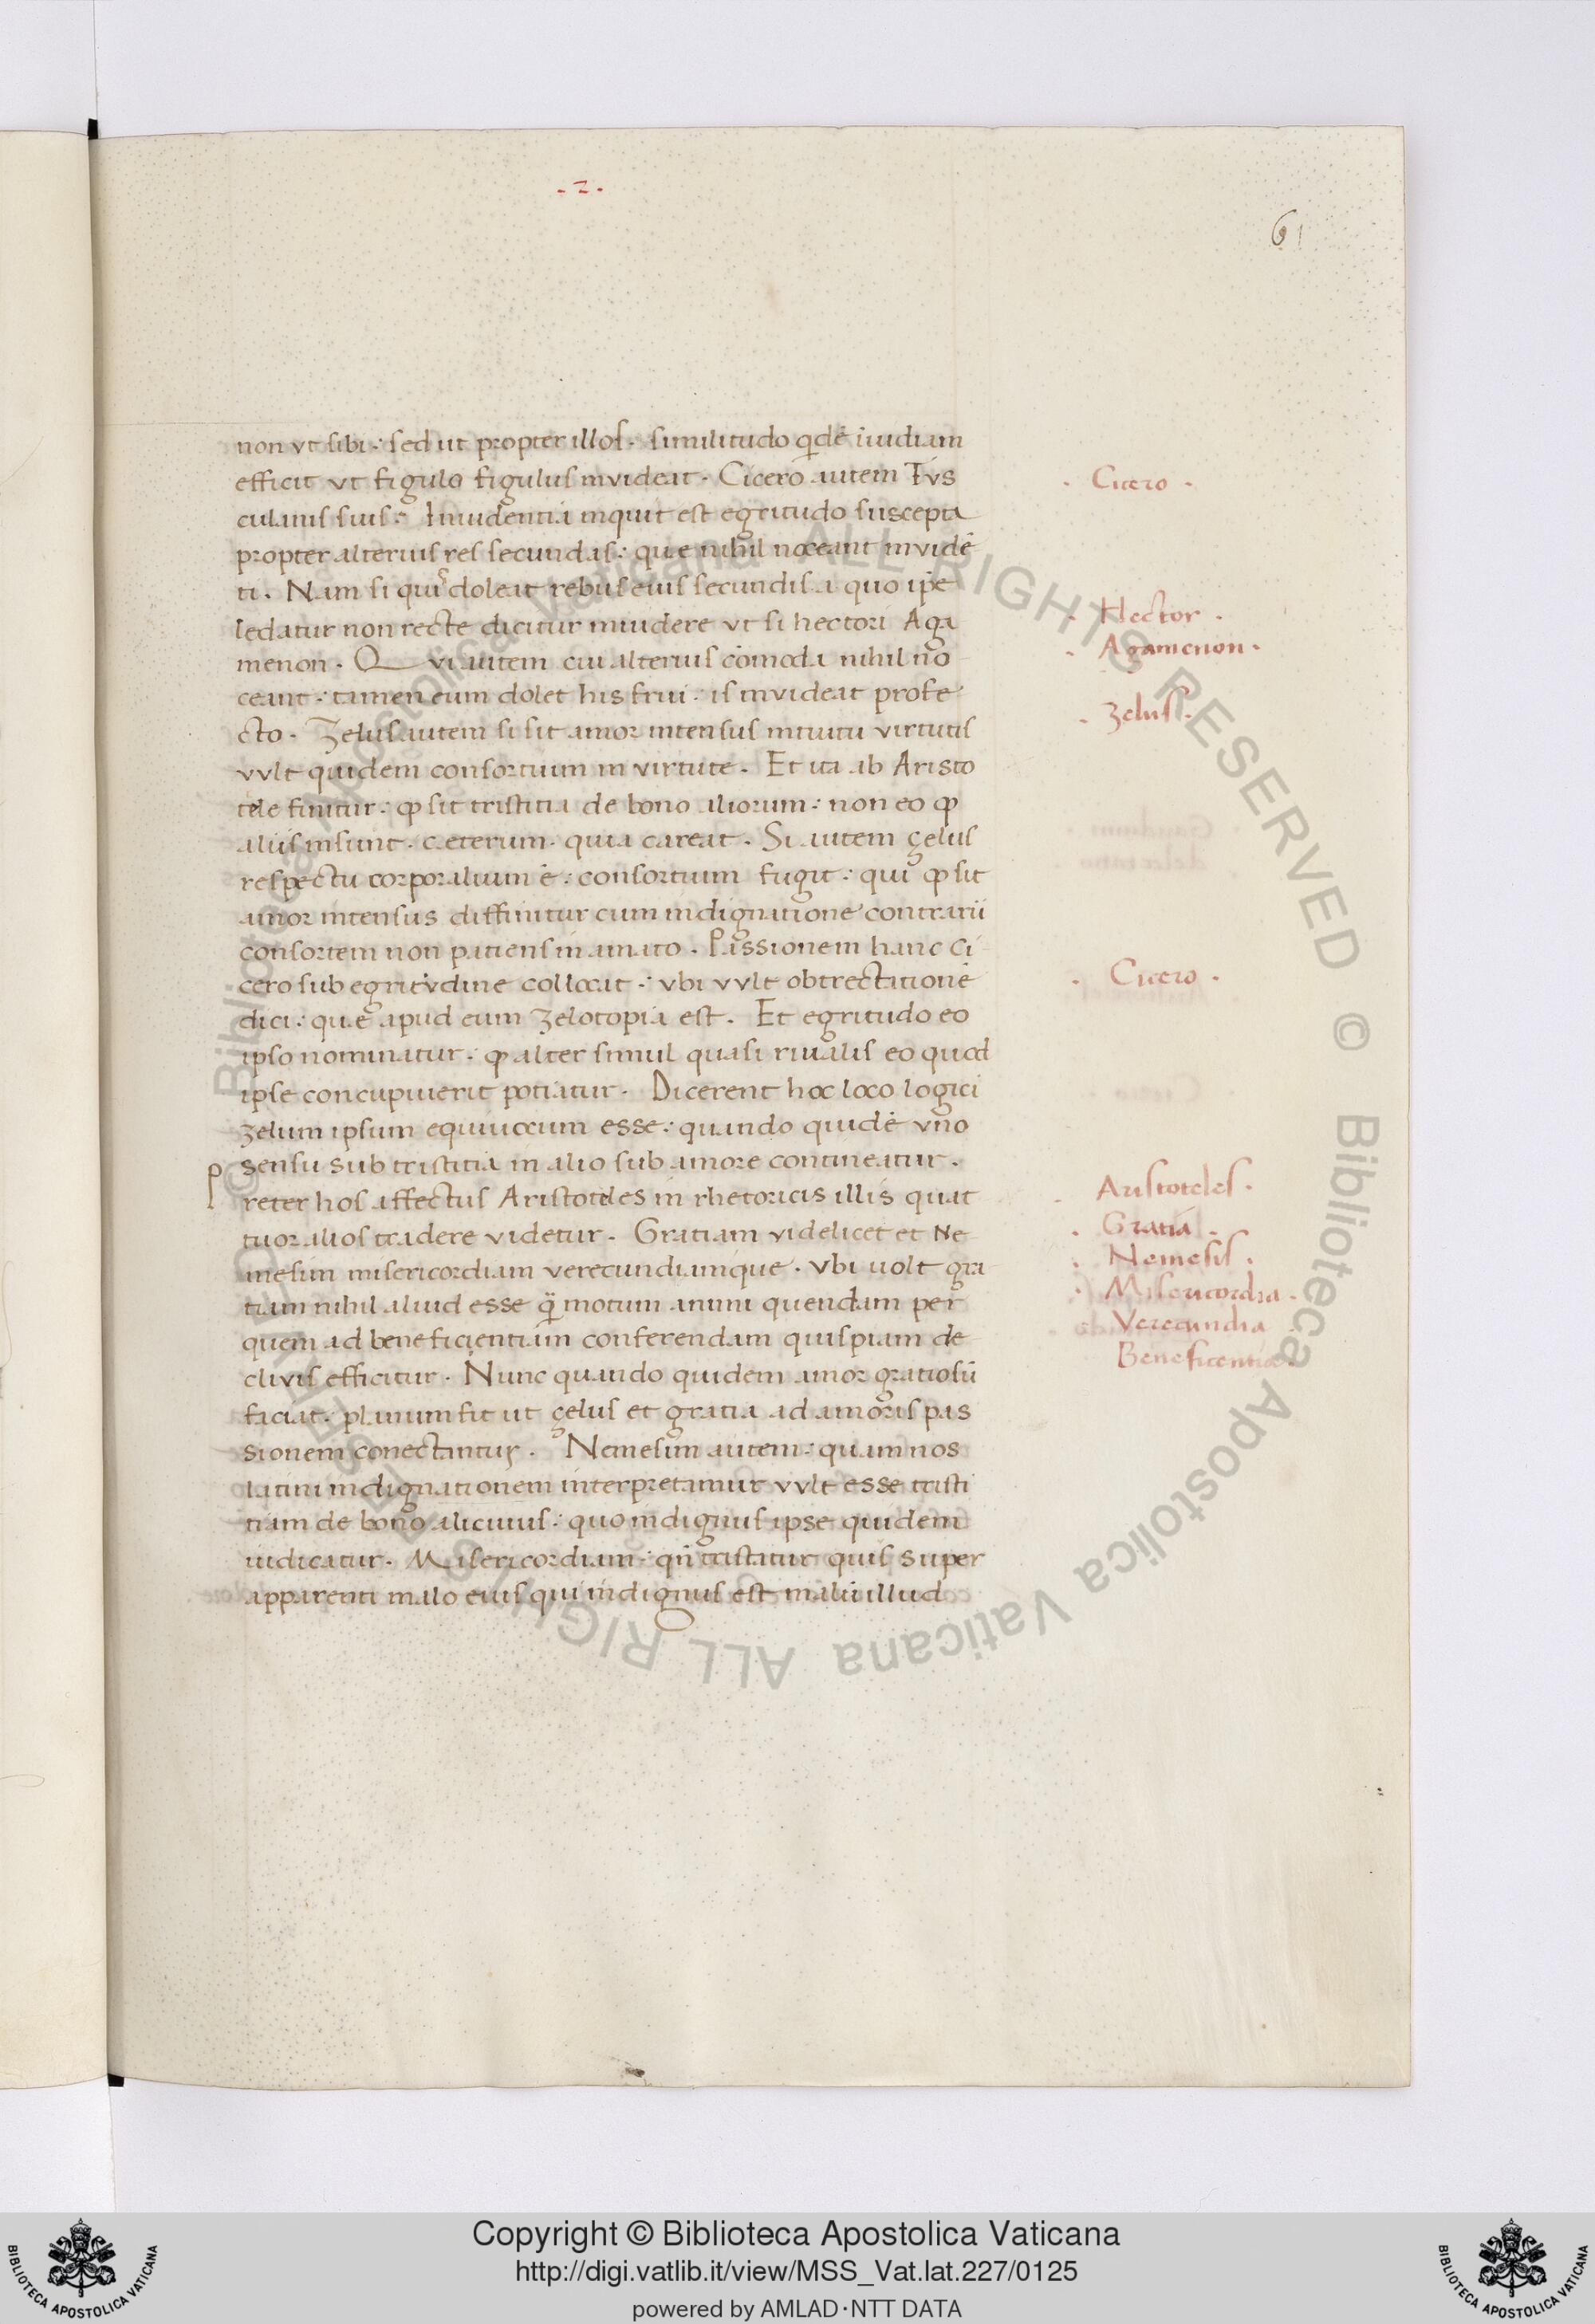 - 2 -
61
non vt sibi: sed ut propter illos. similitudo qͥdē īuidiam
efficit vt figulo figulus invideat. Cicero autem Tvs
culanis suis. Inuidentia inquit est egritudo suscepta
propter alterius res secundas: que nihil noceant invidē
ti. Nam si quiˢ doleat rebus eius secundis a quo ip̄e
ledatur non recte dicitur inuidere vt si hectori Aga
menon. Qvi autem cui alterius cōmoda nihil no
ceant: tamen eum dolet his frui: is invideat profe
cto. Zelus autem si sit amor intensus intuitu virtutis
vvlt quidem consortium in virtute. Et ita ab Aristo
tele finitur: ꝙ sit tristitia de bono aliorum: non eo ꝙ
aliis insunt. ceterum. quia careat. Si autem çelus
respectu corporalium ē: consortium fugit: qui ꝙ sit
amor intensus diffinitur cum indignatione contrarii
consortem non patiens in amato. Passionem hanc Ci
cero sub egritvdine collocat: vbi vvlt obtrectationē
dici: que apud eum Zelotopia est. Et egritudo eo
ipso nominatur: ꝙ alter simul quasi riualis eo quod
ipse concupiuerit potiatur. Dicerent hoc loco logici
zelum ipsum equiuocum esse: quando quidē vno
sensu sub tristitia in alio sub amore contineatur.
Preter hos affectus Aristoteles in rhetoricis illis quat
tuor alios tradere videtur. Gratiam videlicet et Ne
mesim misericordiam verecundiamque. Vbi uolt gra
tiam nihil aliud esse q̄ motum animi quendam per
quem ad beneficientiam conferendam quispiam de
clivis efficitur. Nunc quando quidem amor gratiosū
faciat: planum fit ut çelus et gratia ad amoris pas
sionem conectantur. Nemesim autem: quam nos
latini indignationem interpretamur vvlt esse tristi
tiam de bono alicuius: quo indignus ipse quidem
iudicatur. Misericordiam: qn̄ tristatur quis super
apparenti malo eius qui indignus est malū illud
. Cicero .
. Hector .
. Agamenon .
. Zelus .
. Cicero .
. Aristoteles .
. Gratia .
. Nemesis .
. Misericordia .
. Verecundia .
Beneficentia
Copyright © Biblioteca Apostolica Vaticana
http://digi.vatlib.it/view/MSS_Vat.lat.227/0125
powered by AMLAD·NTT DATA
BIBLIOTECA APOSTOLICA VATICANA
BIBLIOTECA APOSTOLICA VATICANA
© Biblioteca Apostolica Vaticana ALL RIGHTS RESERVED © Biblioteca Apostolica Vaticana ALL RIGHTS RESERVED